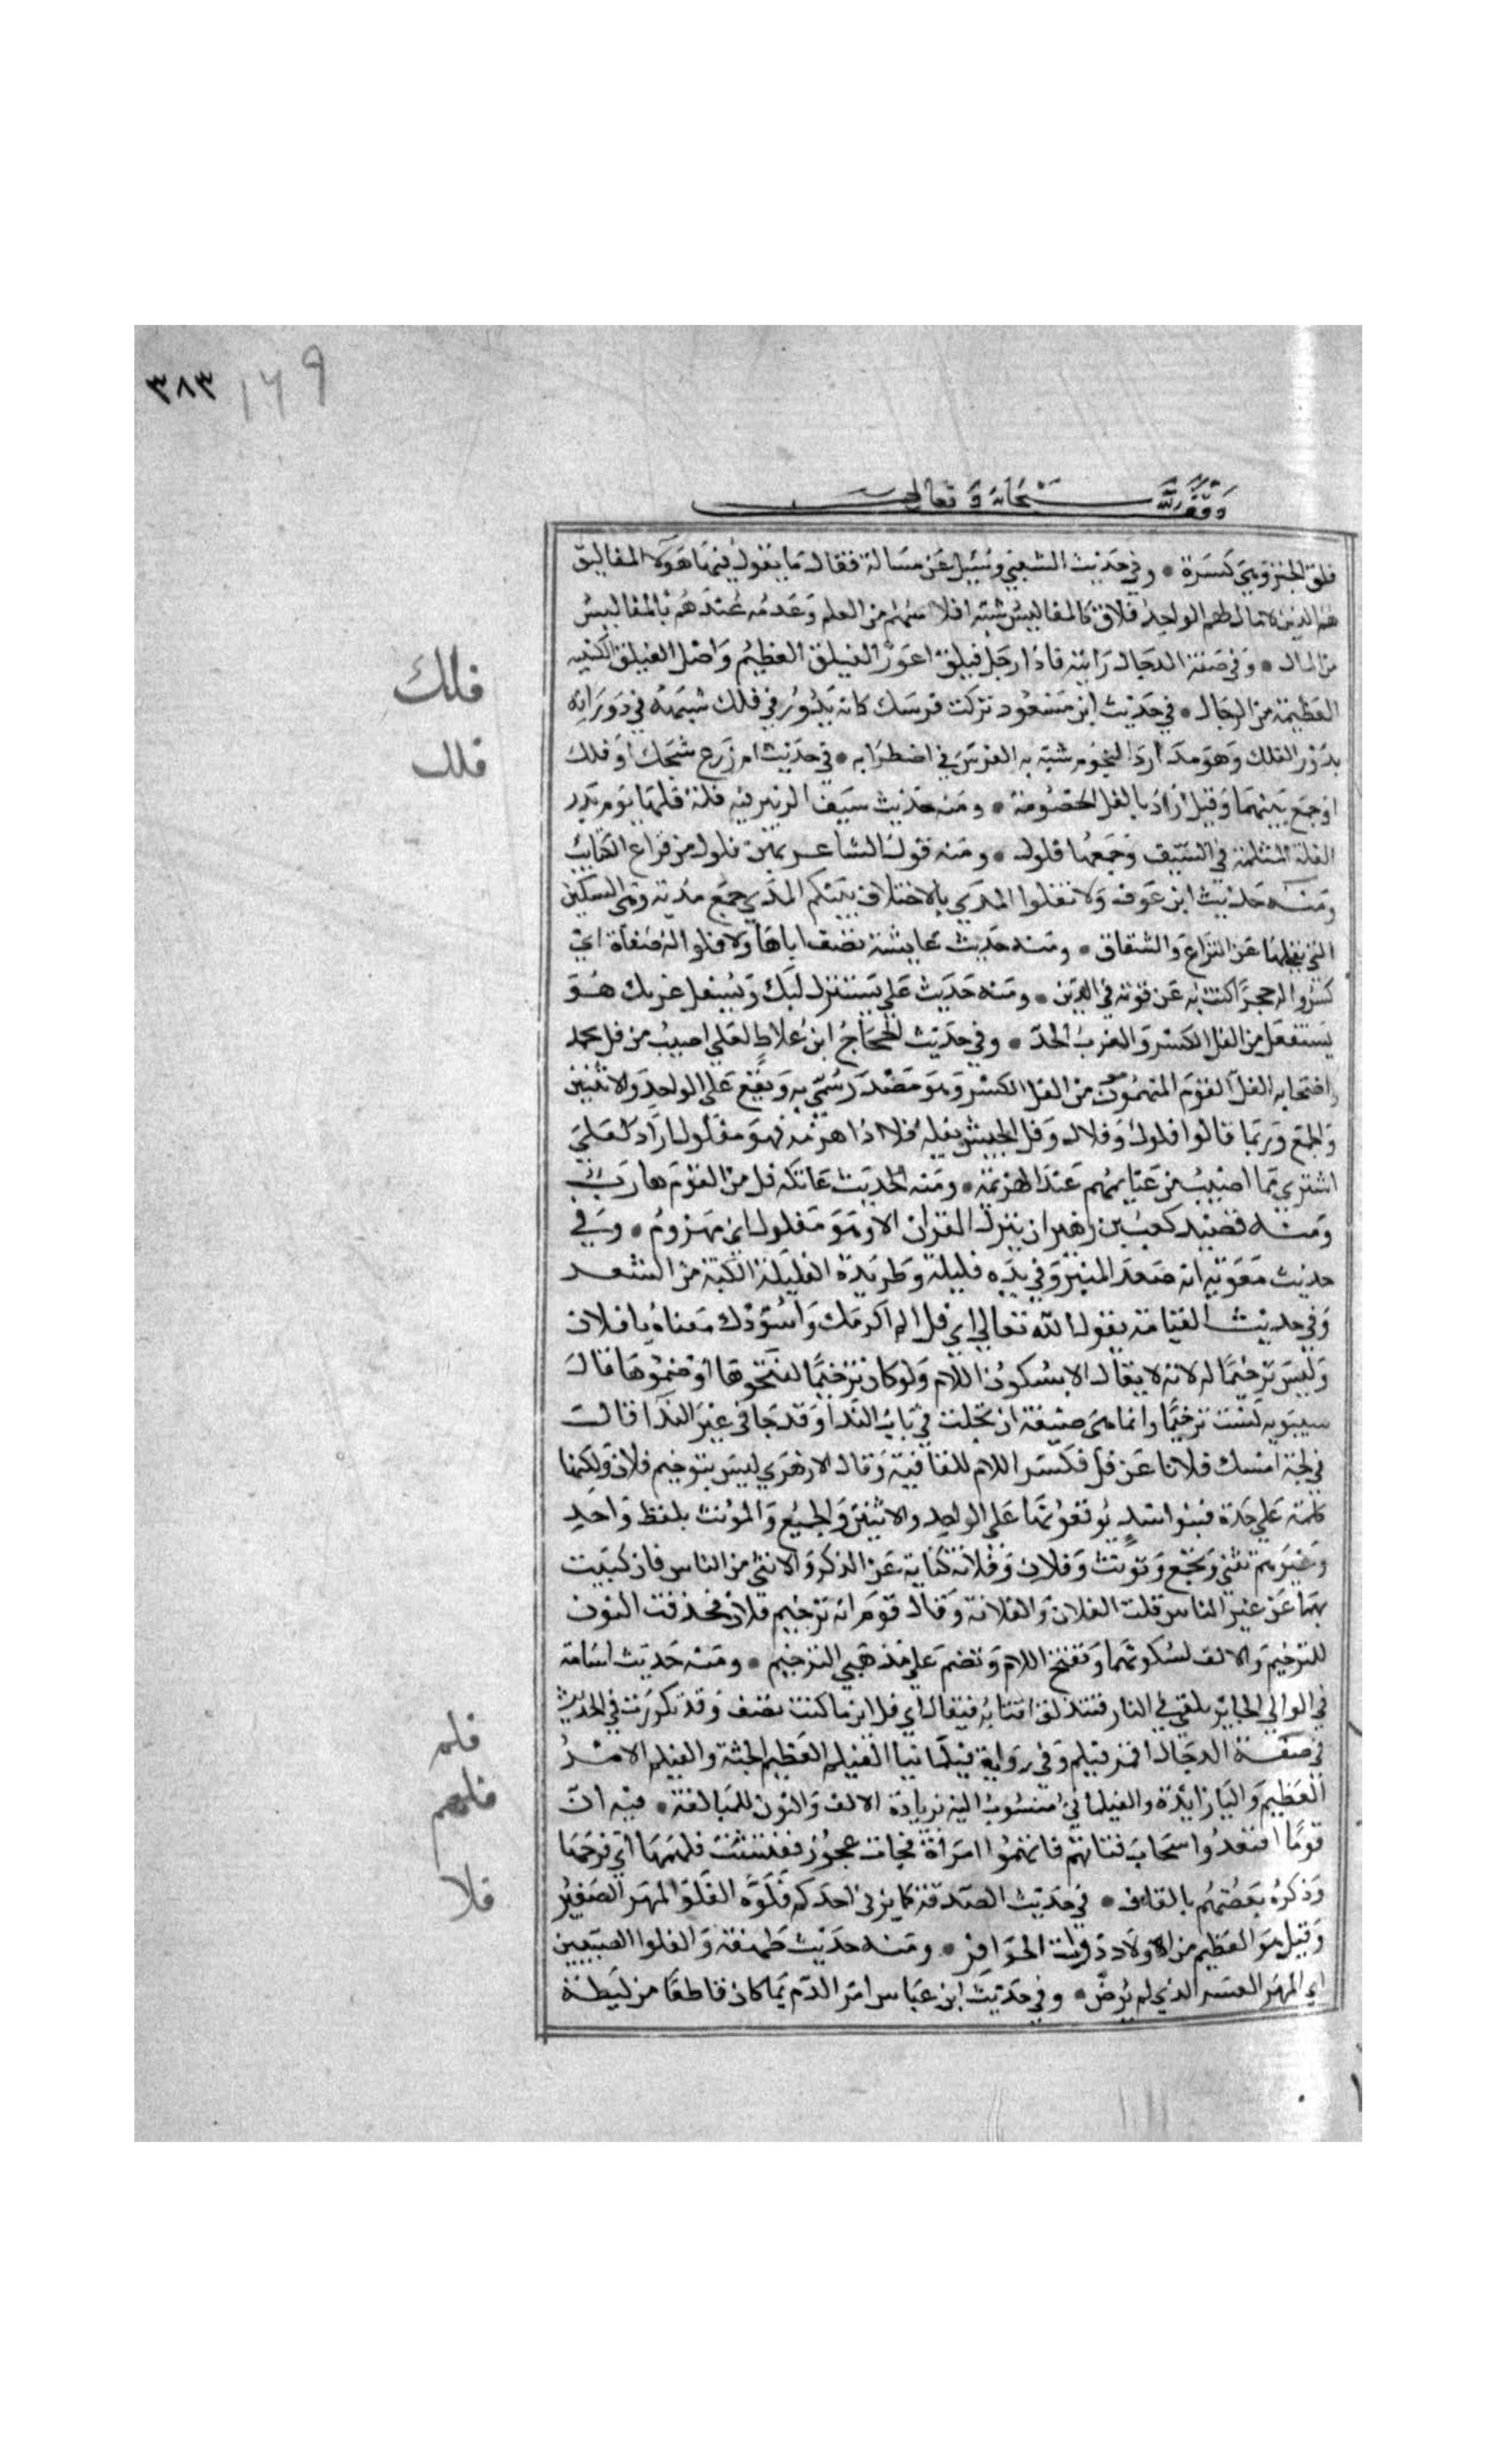 ٣٨٣ ١٦٩
وقف لله سبحانه وتعالى
فلق الخبز وهي كسرة • وفي حديث الشعبي وسئل عن مسالة فقال ما يقول فيها هولا المفاليق
هم الذين لا مال لهم الواحد فلاق كالمفاليس شبه افلاسهم من العلم وعدمه عندهم بالمفاليس
من المال • وفي صفة الدجال رايته فاذا رجل فيلق اعور الفيلق العظيم واصل الفيلق الكتيبه
العظيمة من الرجال • في حديث ابن مسعود تركت فرسك كانه يدور في فلك شبهه في دورانه
بدور الفلك وهو مدار النجوم شبه به الفرس في اضطرابه • في حديث ام زرع شجك او فلك
او جمع بينهما وقيل اراد بالفل الخصومة • ومنه حديث سيف الزبير فيه فلة فلها يوم بدر
الفلة الثلمة في السيف وجمعها فلول • ومنه قول الشاعر بهن فلول من قراع الكتايب
ومنه حديث ابن عوف ولا تفلوا المدي بالاختلاف بينكم المدي جمع مدية وهي السكين
التي يفلها عن النزاع والشقاق • ومنه حديث عايشة تصف اباها ولا فلوا له صفاة اي
كسروا له حجرا كنت به عن قوته في الدين • ومنه حديث علي يستنزل لبك ويستفل غربك هو
يستفعل من الفل الكسر والغرب الحد • وفي حديث الحجاج ابن علاط لعلي اصيب من فل محمد
وافتحابه الفل القوم المنهزمون من الفل الكسر وهو مصدر سمي به ويقع على الواحد والاثنين
والجمع وربما قالوا فلول وفلال وفل الجيش يفله فلا اذا هزمه فهو مفلول اراد لعلي
اشتري مما اصيب من غنايمهم عند الهزيمة • ومنه الحديث عاتكه فل من القوم هارب
ومنه قصيد كعب بن زهير ان يترك القرن الا وهو مفلول اي مهزوم • وفي
حديث معوية انه صعد المنبر وفي يده فليلة وطريدة الفليلة الكبة من الشعر
وفي حديث القيامة يقول الله تعالى اي فل الم اكرمك واسودك معناه يا فلان
وليس ترخيما له لانه لا يقال الا بسكون اللام ولو كان ترخيما لفتحوها او ضموها قال
سيبويه ليست ترخيما وانما هي صيغة ارتجلت في باب الندا وقد جا في غير الندا قالت
في لجة امسك فلانا عن فل فكسر اللام للقافية وقال الازهري ليس بترخيم فلان ولكنها
كلمة على حدة فبنوا اسد يوقعونها على الواحد والاثنين والجميع والمونث بلفظ واحد
وغيرهم تثني وتجمع وتونث وفلان وفلانة كناية عن الذكر والانثى من الناس فان كنيت
بهما عن غير الناس قلت الفلان والفلانة وقال قوم انه ترخيم فلان فحذفت النون
للترخيم والالف لسكونها وتفتح اللام وتضم على مذهبي الترخيم • ومنه حديث اسامة
في الوالي الجاير يلقى في النار فتندلق اقتابه فيقال اي فل اين ما كنت تصف وقد تكررت في الحديث
في صفة الدجال اقمر فيلم وفي رواية فيلمانيا الفيلم العظيم الجثة والفيلم الامر
العظيم واليا زائدة والفيلماني منسوب اليه بزيادة الالف والنون للمبالغة • فيه ان
قوما افتقدوا سخاب فتاتهم فاتهموا امراة فجات عجوز ففتشت فلهمها اي فرجها
وذكره بعضهم بالقاف • في حديث الصدقة كما يربي احدكم فلوه الفلو المهر الصغير
وقيل هو العظيم من اولاد ذوات الحوافر • ومنه حديث طهفة والفلوا الضبيس
اي المهر العسر الذي لم يرض • وفي حديث ابن عباس امر الدم بما كان قاطعا من ليطة
فلك
فلل
فلم
فلهم
فلا